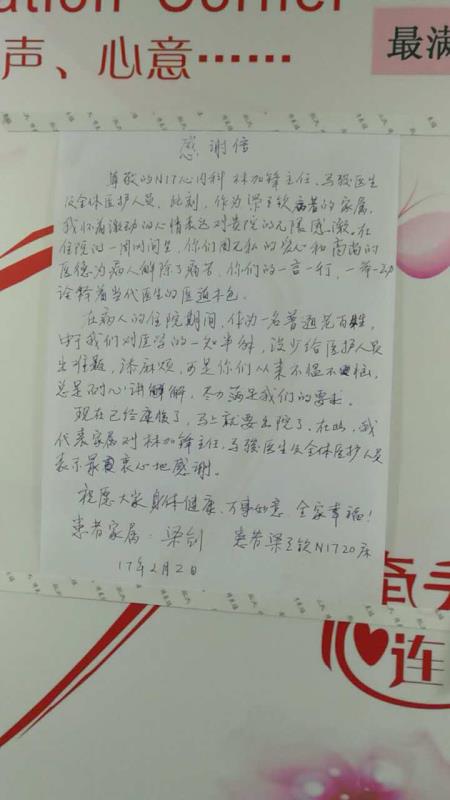 ation Corner
声、心意……
最满
感谢信
尊敬的N17心内科 林加锋主任、马骏医生
及全体医护人员，此刻，作为梁玉钦病者的家属，
我怀着激动的心情表达对贵院的无限感激，在
住院的一周时间里，你们用无私的爱心和高尚的
医德为病人解除了痛苦，你们的一言一行，一举一动
诠释着当代医生的医道本色。
在病人的住院期间，作为一名普通老百姓，
由于我们对医学的一知半解，没少给医护人员
出难题，添麻烦，可是你们从来不愠不恼，
总是耐心讲解，尽力满足我们的要求。
现在已经康复了，马上就要出院了，在此，我
代表家属对林加锋主任、马骏医生及全体医护人员
表示最衷心地感谢。
祝愿大家身体健康、万事如意、全家幸福！
患者家属：梁剑 患者梁玉钦N1720床
17年2月2日
牵手
心连